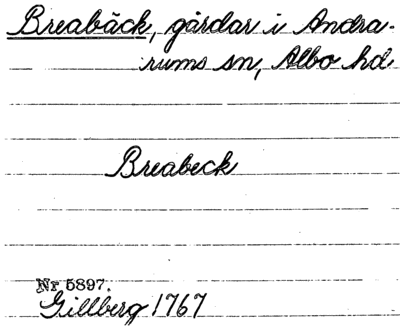 Breabäck, gårdar i Andra-
rums sn, Albo hd
Breabeck
Nr 5897.
Gillberg 1767